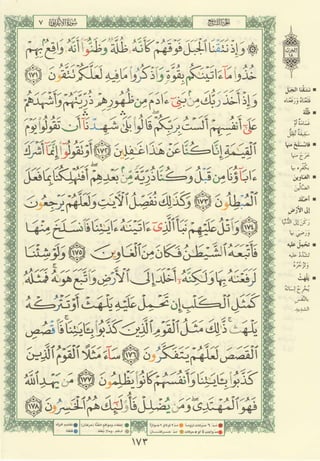 الجزء التاسع سورة الأعراف ٧
۞ وَإِذْ نَتَقْنَا ٱلْجَبَلَ فَوْقَهُمْ كَأَنَّهُۥ ظُلَّةٌ وَظَنُّوٓا۟ أَنَّهُۥ وَاقِعٌۢ بِهِمْ
خُذُوا۟ مَآ ءَاتَيْنَٰكُم بِقُوَّةٍ وَٱذْكُرُوا۟ مَا فِيهِ لَعَلَّكُمْ تَتَّقُونَ ١٧١
وَإِذْ أَخَذَ رَبُّكَ مِنۢ بَنِىٓ ءَادَمَ مِن ظُهُورِهِمْ ذُرِّيَّتَهُمْ وَأَشْهَدَهُمْ
عَلَىٰٓ أَنفُسِهِمْ أَلَسْتُ بِرَبِّكُمْ ۖ قَالُوا۟ بَلَىٰ ۛ شَهِدْنَآ ۛ أَن تَقُولُوا۟ يَوْمَ
ٱلْقِيَٰمَةِ إِنَّا كُنَّا عَنْ هَٰذَا غَٰفِلِينَ ١٧٢ أَوْ تَقُولُوٓا۟ إِنَّمَآ أَشْرَكَ
ءَابَآؤُنَا مِن قَبْلُ وَكُنَّا ذُرِّيَّةً مِّنۢ بَعْدِهِمْ ۖ أَفَتُهْلِكُنَا بِمَا فَعَلَ
ٱلْمُبْطِلُونَ ١٧٣ وَكَذَٰلِكَ نُفَصِّلُ ٱلْءَايَٰتِ وَلَعَلَّهُمْ يَرْجِعُونَ
١٧٤ وَٱتْلُ عَلَيْهِمْ نَبَأَ ٱلَّذِىٓ ءَاتَيْنَٰهُ ءَايَٰتِنَا فَٱنسَلَخَ مِنْهَا
فَأَتْبَعَهُ ٱلشَّيْطَٰنُ فَكَانَ مِنَ ٱلْغَاوِينَ ١٧٥ وَلَوْ شِئْنَا
لَرَفَعْنَٰهُ بِهَا وَلَٰكِنَّهُۥٓ أَخْلَدَ إِلَى ٱلْأَرْضِ وَٱتَّبَعَ هَوَىٰهُ ۚ فَمَثَلُهُۥ
كَمَثَلِ ٱلْكَلْبِ إِن تَحْمِلْ عَلَيْهِ يَلْهَثْ أَوْ تَتْرُكْهُ
يَلْهَث ۚ ذَّٰلِكَ مَثَلُ ٱلْقَوْمِ ٱلَّذِينَ كَذَّبُوا۟ بِـَٔايَٰتِنَا ۚ فَٱقْصُصِ
ٱلْقَصَصَ لَعَلَّهُمْ يَتَفَكَّرُونَ ١٧٦ سَآءَ مَثَلًا ٱلْقَوْمُ ٱلَّذِينَ
كَذَّبُوا۟ بِـَٔايَٰتِنَا وَأَنفُسَهُمْ كَانُوا۟ يَظْلِمُونَ ١٧٧ مَن يَهْدِ ٱللَّهُ
فَهُوَ ٱلْمُهْتَدِى ۖ وَمَن يُضْلِلْ فَأُو۟لَٰٓئِكَ هُمُ ٱلْخَٰسِرُونَ ١٧٨
نتقنا الجبل
ظلة
فانسلخ منها
الغاوين
أخلد
إلى الأرض
تحمل عليه
يلهث
١٧٣